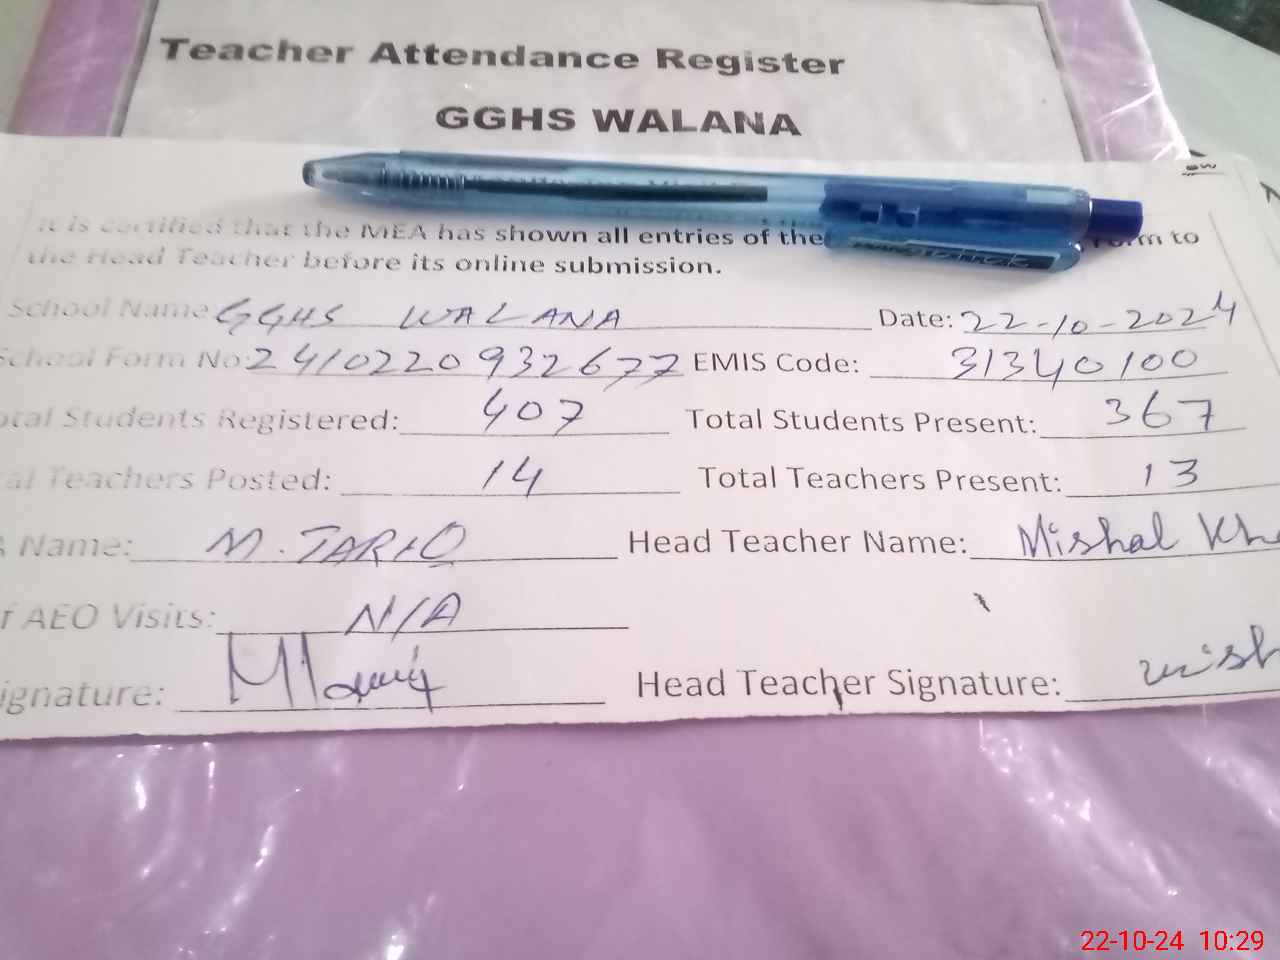 Teacher Attendance Register
GGHS WALANA
It is certified that the MEA has shown all entries of the to
the Head Teacher before its online submission.
School Name: GGHS WALANA Date: 22-10-2024
School Form No: 2410220932677 EMIS Code: 31340100
Total Students Registered: 407 Total Students Present: 367
Teachers Posted: 14 Total Teachers Present: 13
Name: M. TARIQ Head Teacher Name: Mishal
AEO Visits: N/A
Head Teacher Signature:
22-10-24 10:29